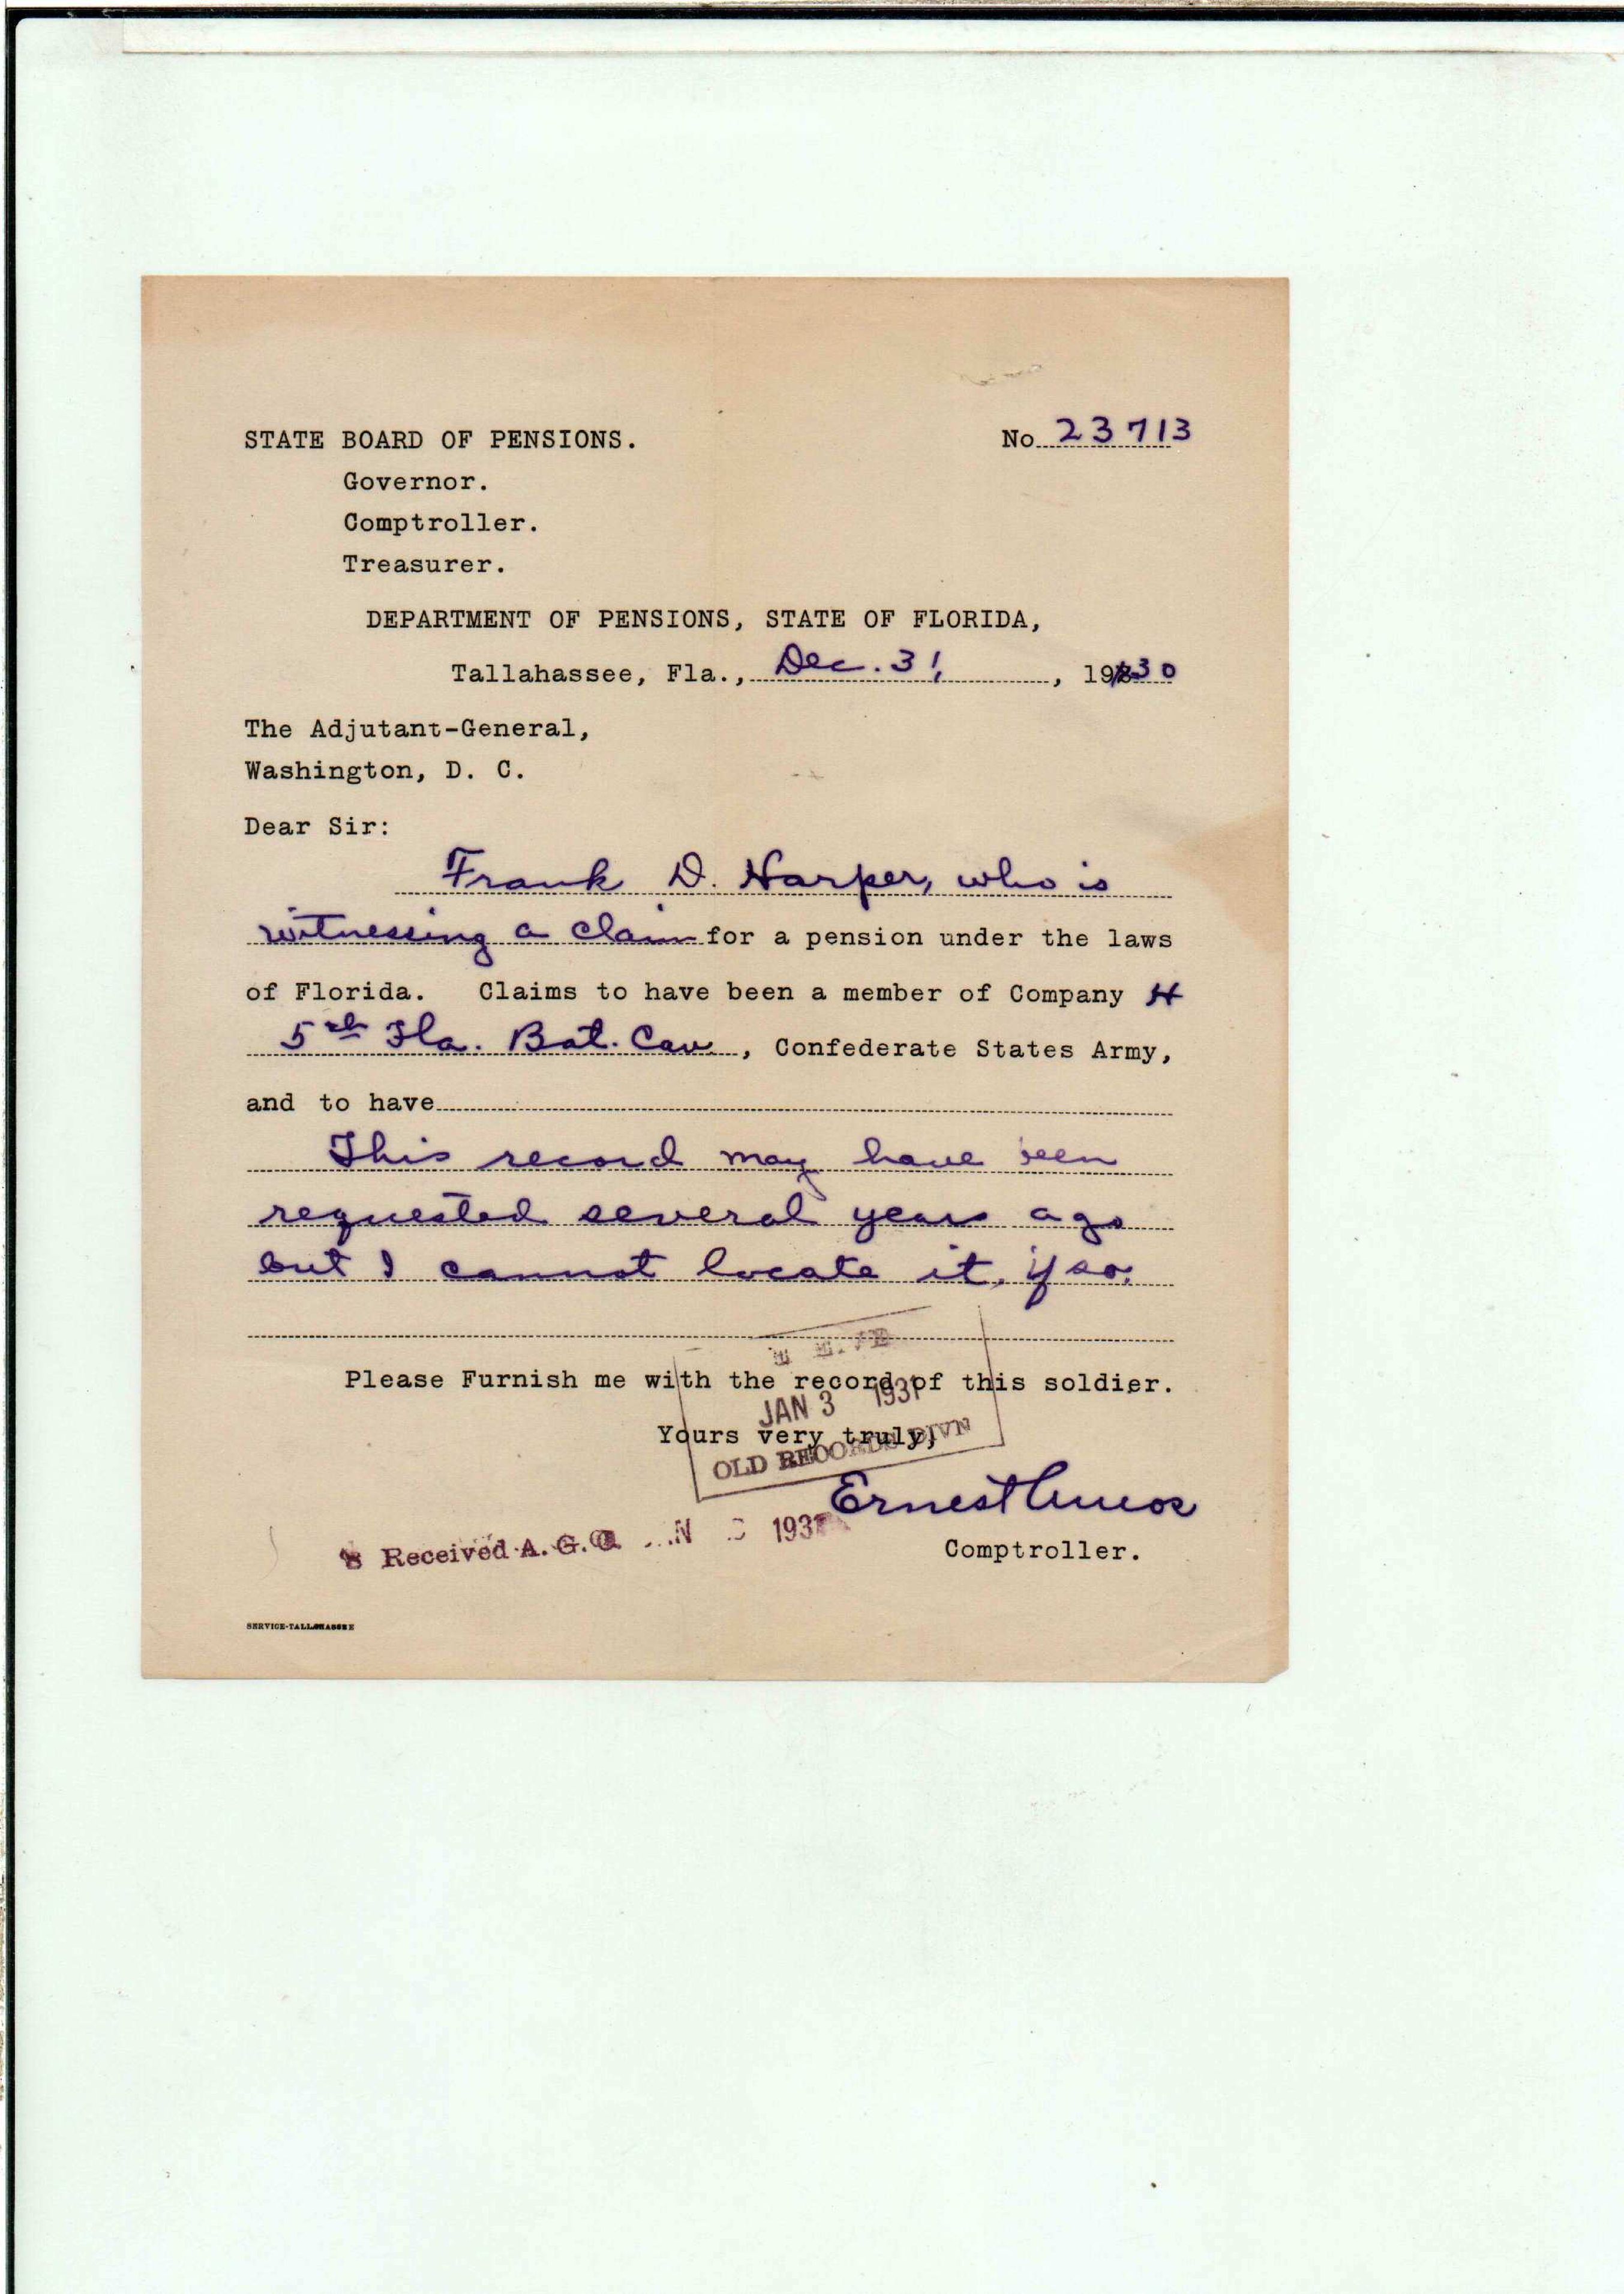 STATE BOARD OF PENSIONS. No 23713
Governor.
Comptroller.
Treasurer.
DEPARTMENT OF PENSIONS, STATE OF FLORIDA,
Tallahassee, Fla., Dec. 31, 1930
The Adjutant-General,
Washington, D. C.
Dear Sir:
Frank D. Harper, who is
witnessing a claim for a pension under the laws
of Florida. Claims to have been a member of Company H
5th Fla. Bat. Cav., Confederate States Army,
and to have
This record may have been
requested several years ago
but I cannot locate it, if so.
Please Furnish me with the record of this soldier.
JAN 3 1931
Yours very truly,
OLD RECORDS DIVN
Ernest Amos
Received A. G. O. 1931
Comptroller.
SERVICE-TALLAHASSEE